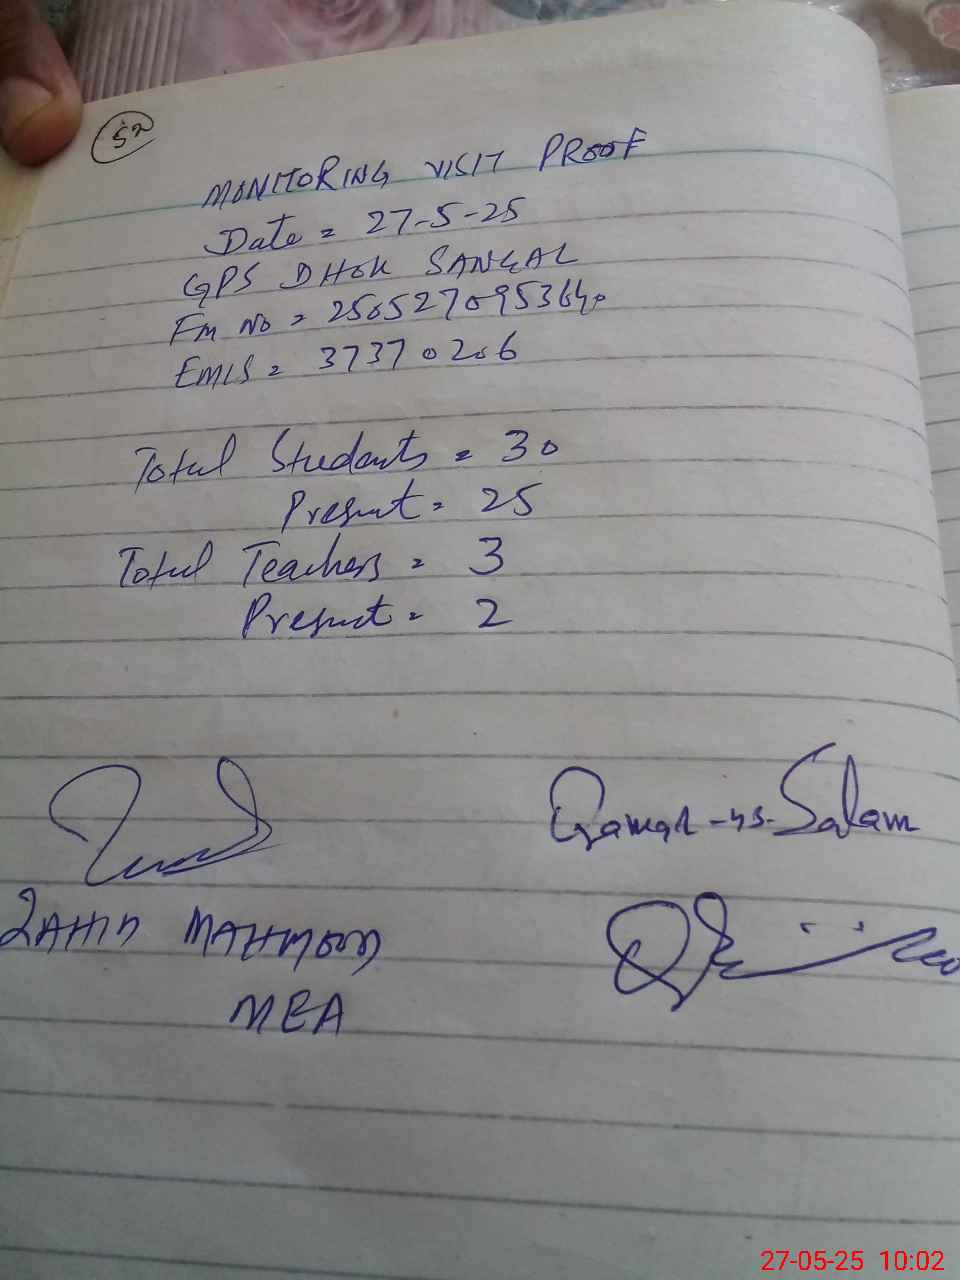 52
MONITORING VISIT PROOF
Date = 27-5-25
GPS DHOK SANGAL
Fm No = 2505270953640
EMIS = 37370206
Total Students = 30
Present = 25
Total Teachers = 3
Present = 2
Qamar-us-Salam
ZAHID MAHMOOD
MEA
27-05-25 10:02